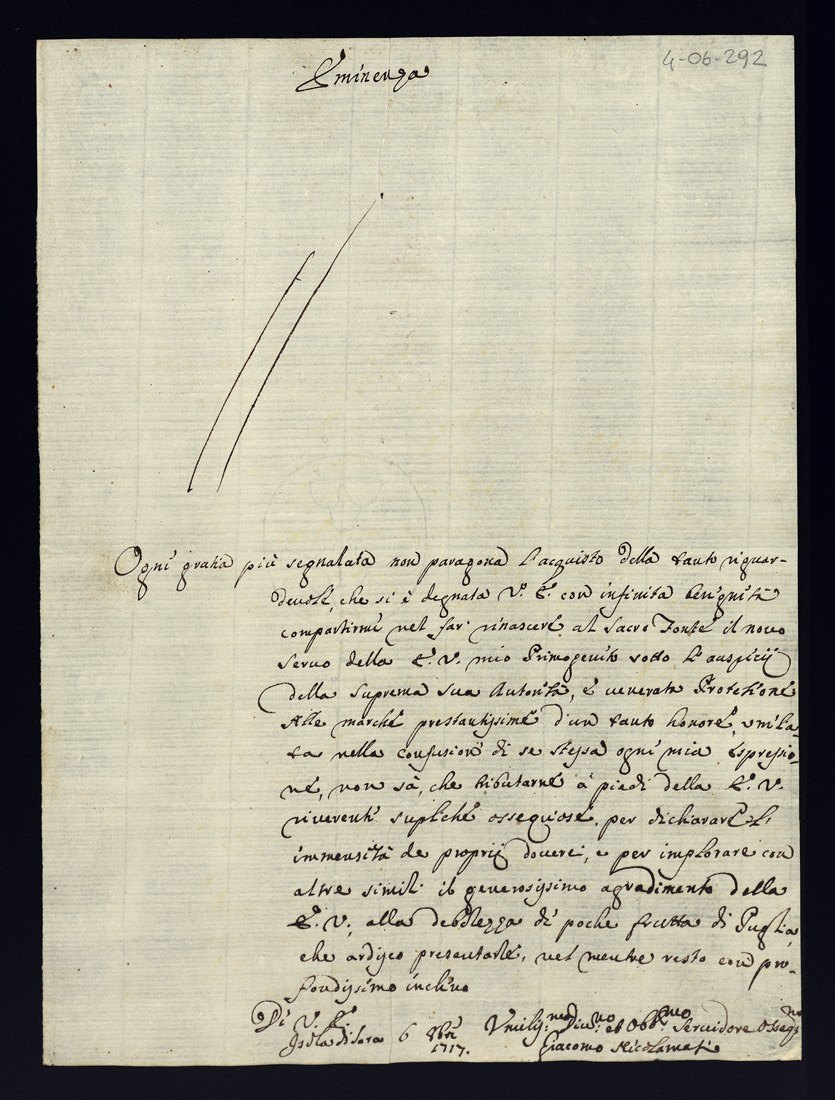 4-06-292
Eminenza
Ogni gratia più segnalata non paragona l'acquisto della tanto riguar-
devole, che si è degnata V. E. con infinita benignità
compartirmi nel far rinascere al Sacro Fonte il novo
servo della E. V. mio Primogenito sotto l'auspicij
della suprema sua Autorità, e venerata Protetione
Alle marche prestantissime d'un tanto honore, umilia-
ta nella confusione di se stessa ogni mia espressio-
ne, non sà, che tributarne à piedi della E. V.
riverenti supliche ossequiose, per dichiarare l'
immensità de proprij doveri, e per implorare con
altre simili il generosissimo agradimento della
E. V. alla debolezza di poche frutta di Puglia,
che ardisco presentarle, nel mentre resto con pro-
fondissimo inclino
Di V. E.
Isola di Sora 6 Xbre 1717.
Umiliss.mo Div.mo et Obb.mo Servidore Osseq.mo
Giacomo Nicolamasi